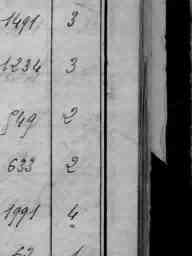 1491 3
1234 3
849 2
633 2
1991 4